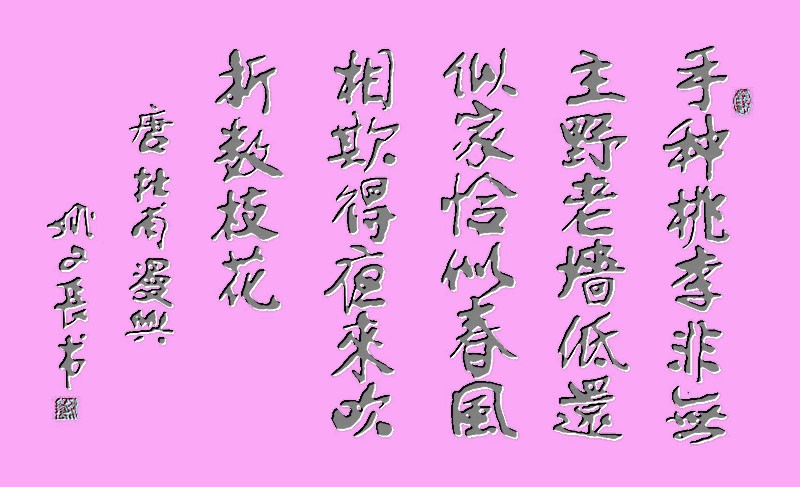 手种桃李非無
主野老墙低還
似家恰似春風
相欺得夜來吹
折数枝花
唐杜甫漫興
文長书